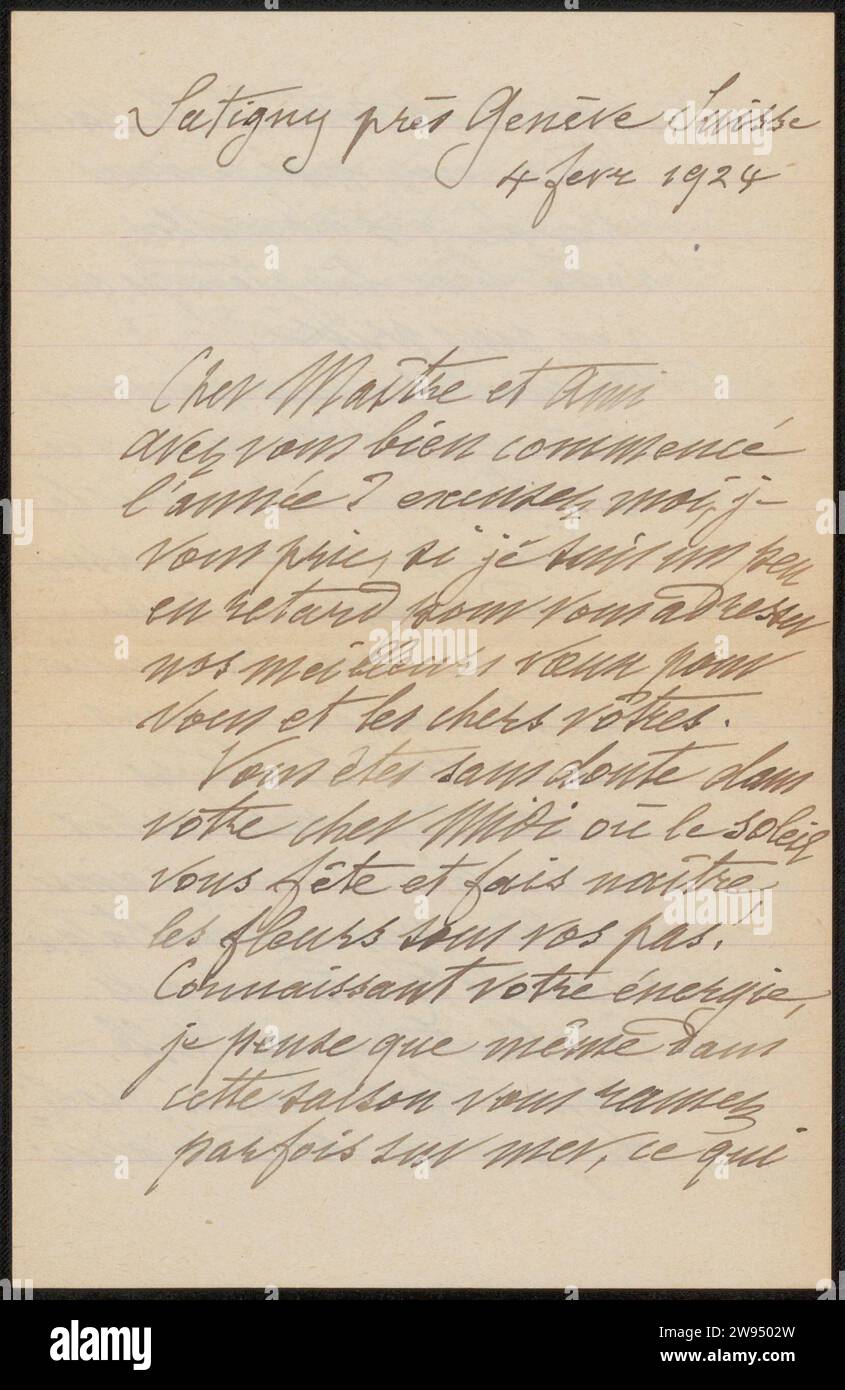 Satigny près Genève Suisse
4 fevr 1924
Cher Maître et Ami
avez vous bien commencé
l'année ? excusez moi, je
vous prie, si je suis un peu
en retard pour vous adresser
nos meilleurs vœux pour
vous et les chers vôtres.
Vous êtes sans doute dans
votre cher Midi où le soleil
vous fête et fais naître
les fleurs sous vos pas!
Connaissant votre énergie,
je pense que même dans
cette saison vous ramez
parfois sur mer, ce qui
alamy
Image ID: 2W9502W
www.alamy.com